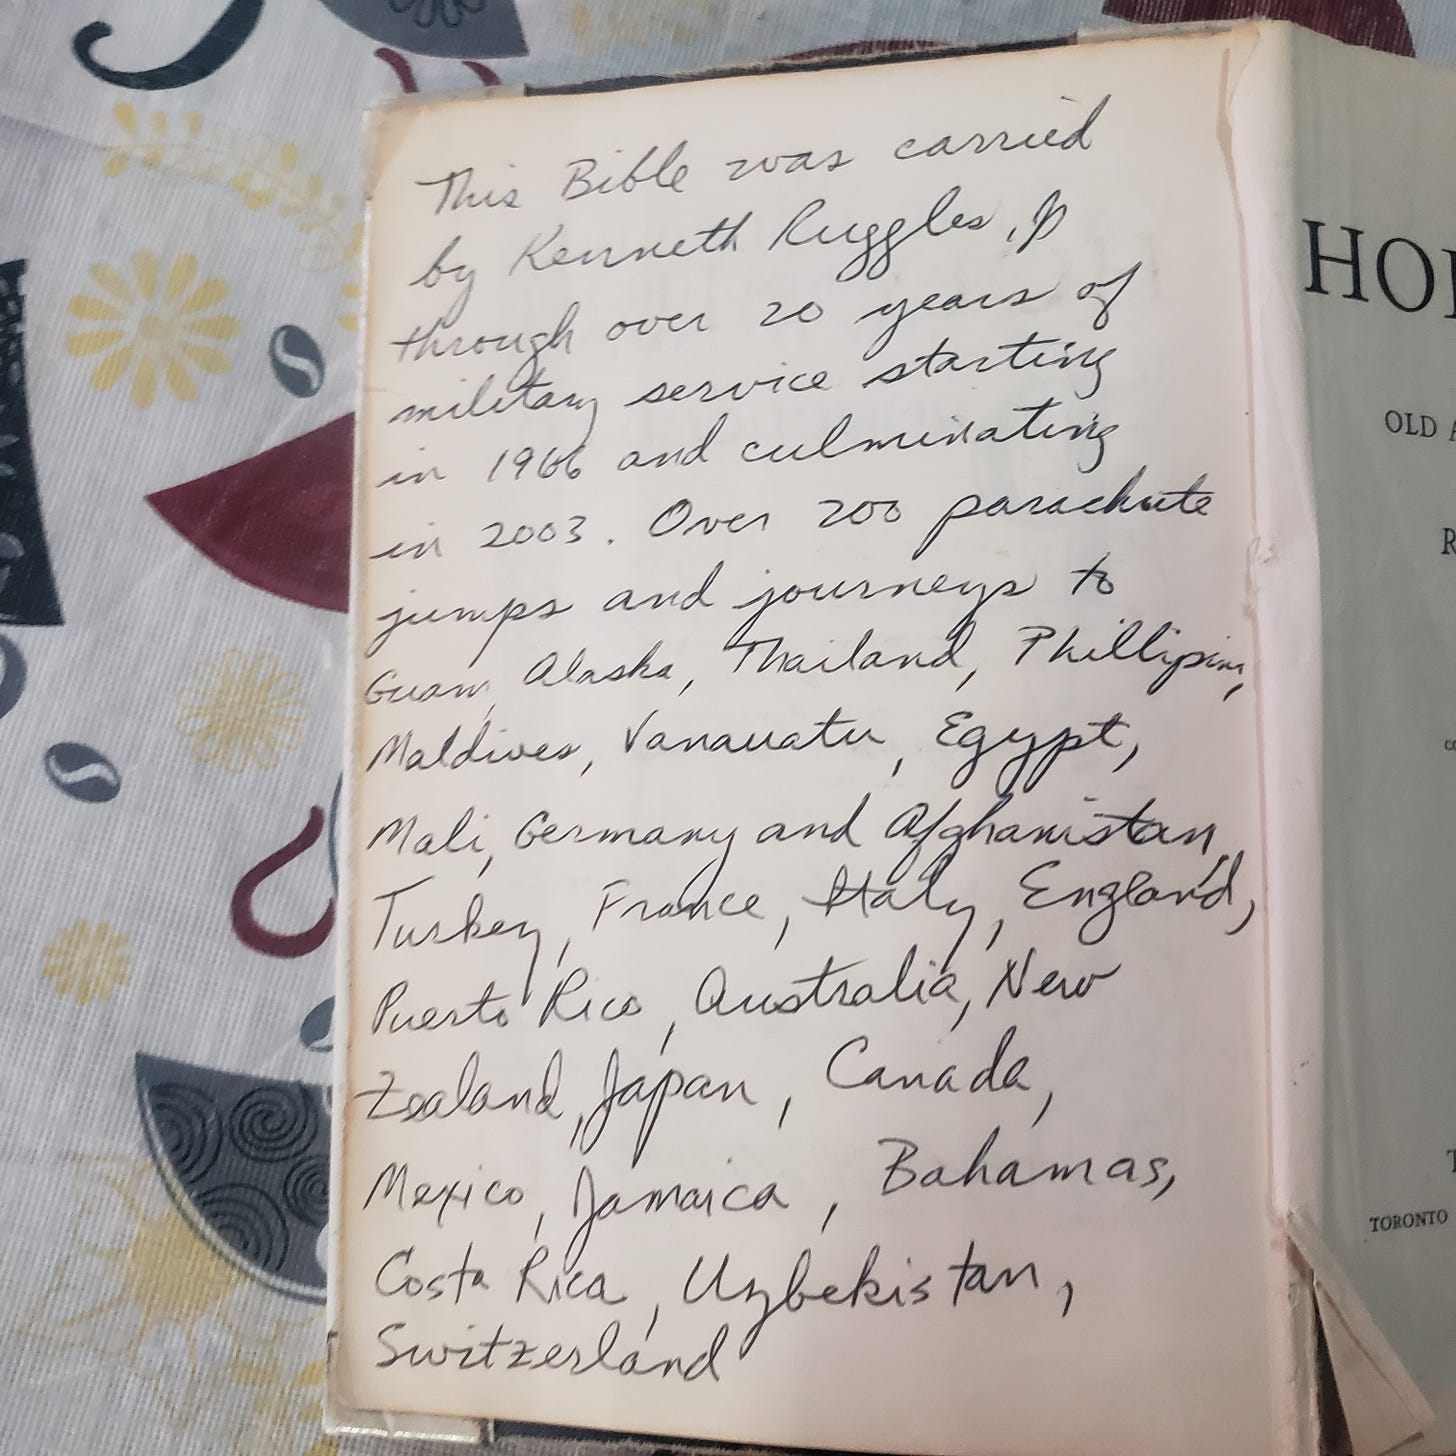 This Bible was carried
by Kenneth Ruggles, Jr
through over 20 years of
military service starting
in 1966 and culminating
in 2003. Over 200 parachute
jumps and journeys to
Guam, Alaska, Thailand,
Maldives, Vanauatu, Egypt,
Mali, Germany and Afghanistan,
Turkey, France, Italy, England,
Puerto Rico, Australia, New
Zealand, Japan, Canada,
Mexico, Jamaica, Bahamas,
Costa Rica, Uzbekistan,
Switzerland
HO
OLD
R
TORONTO